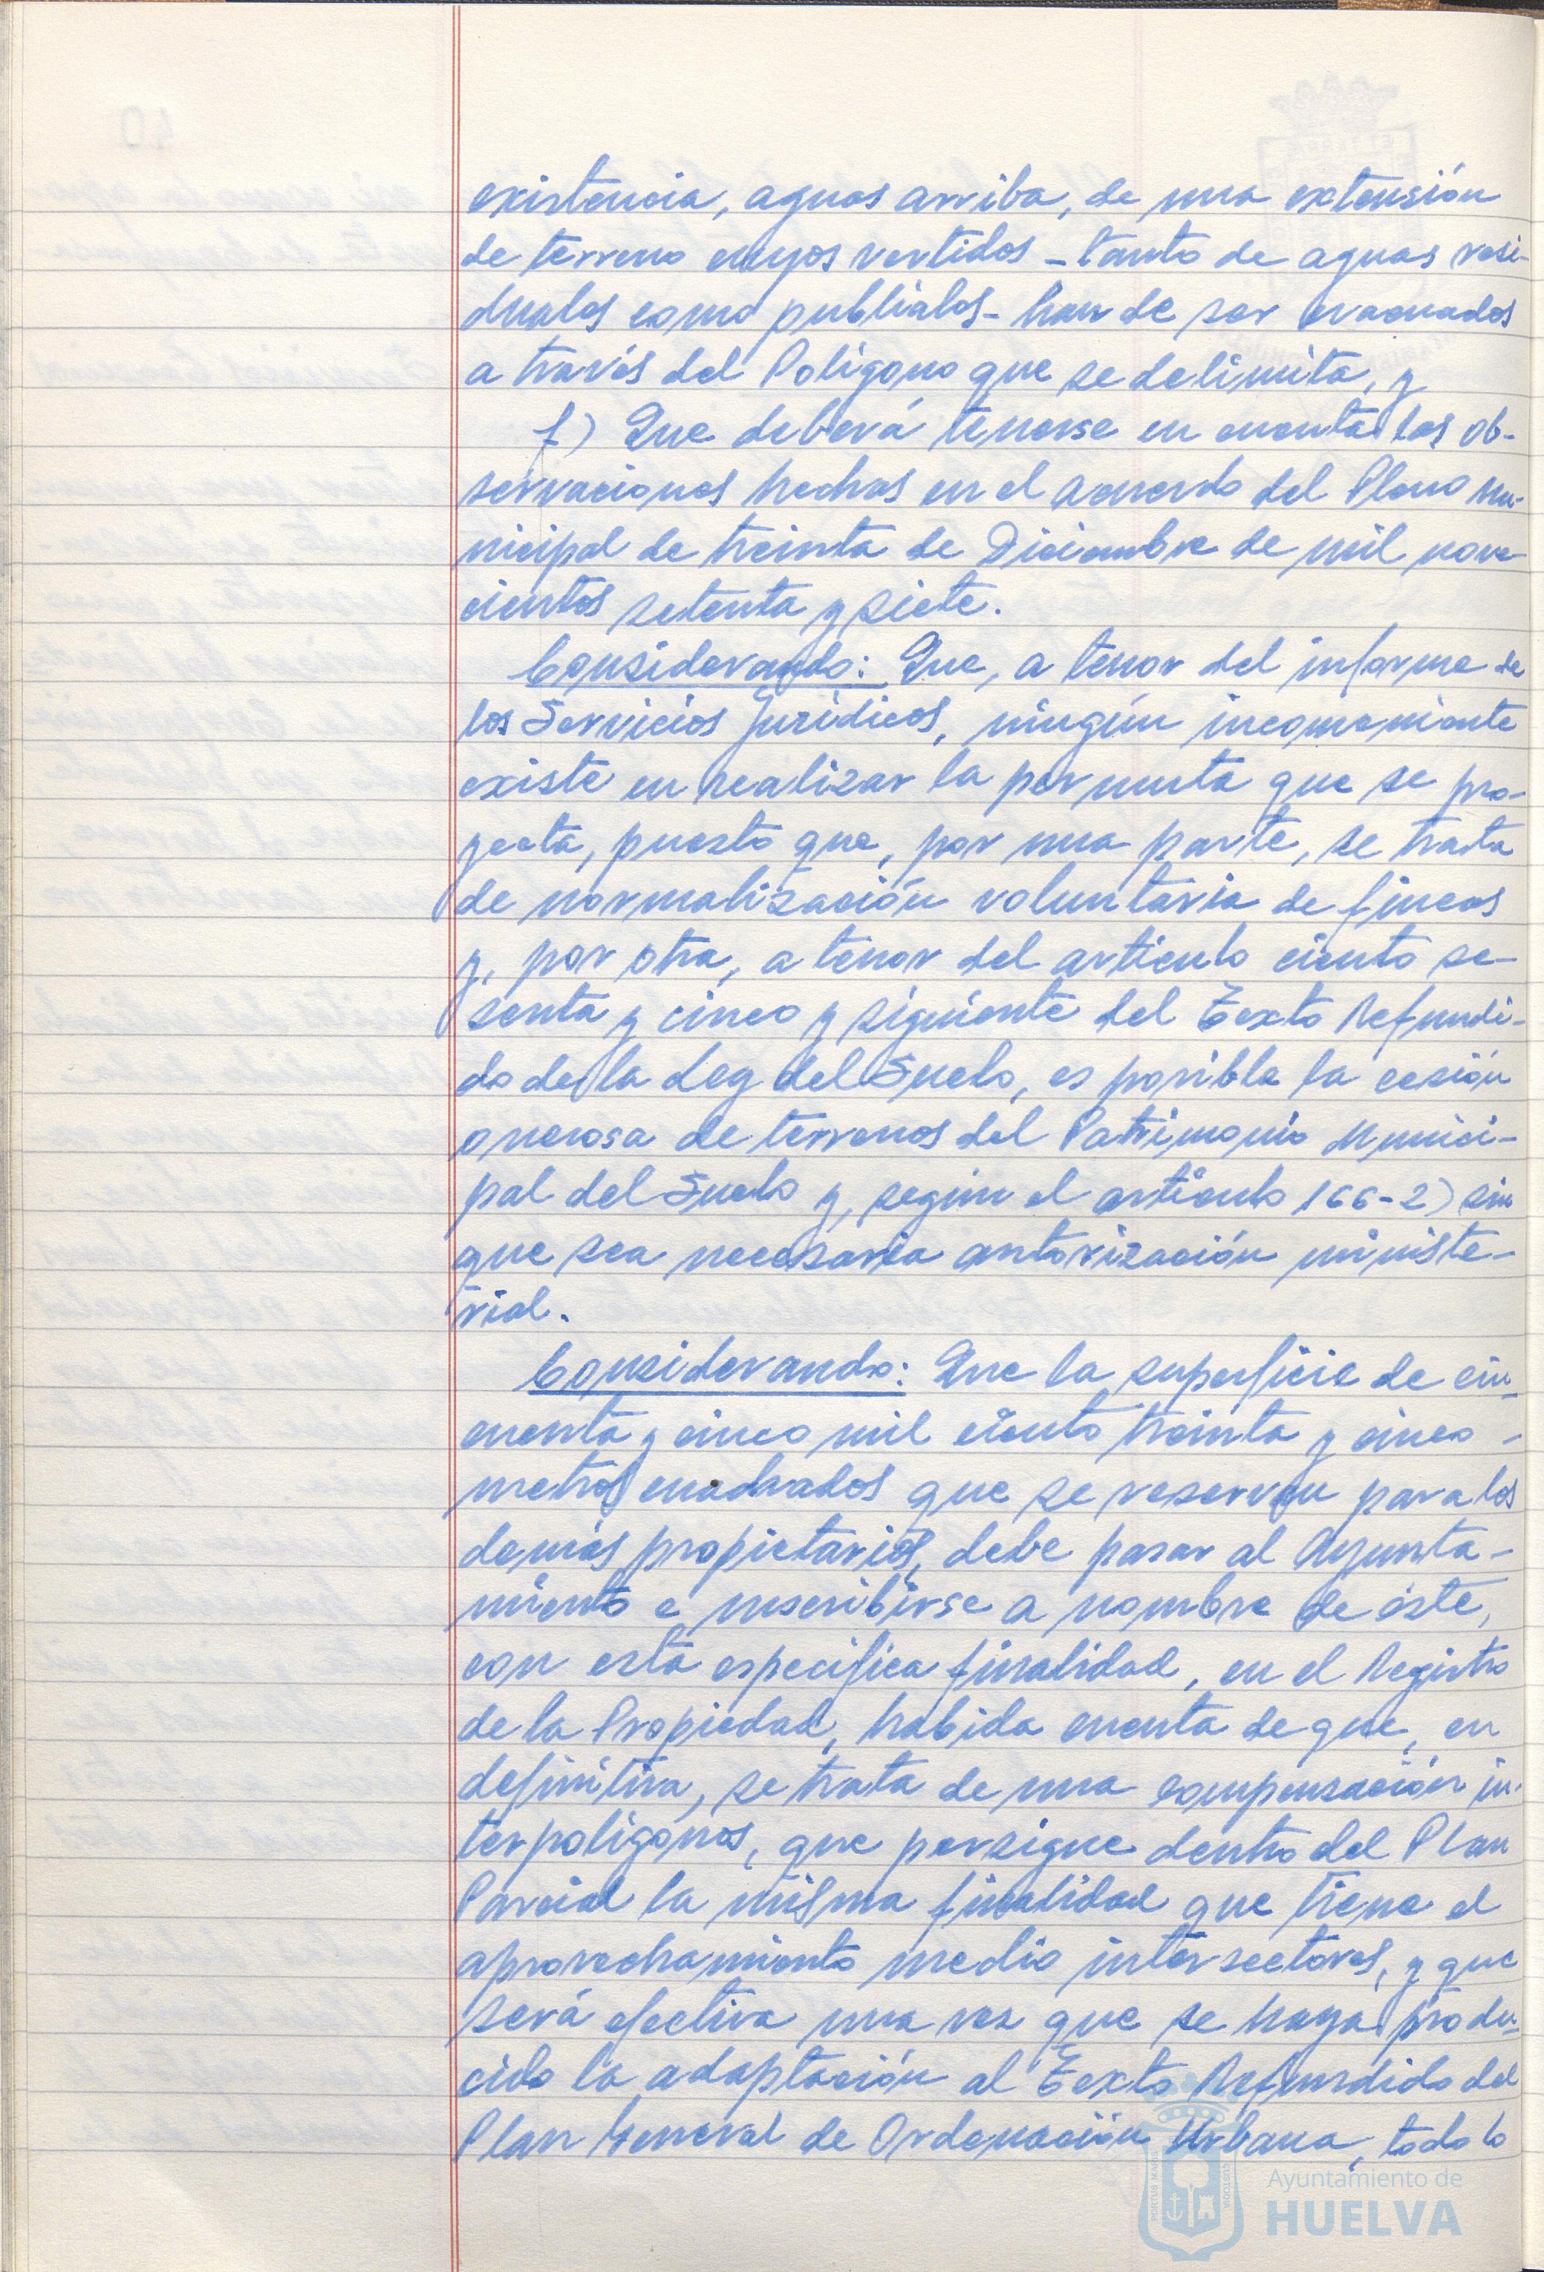 existencia, aguas arriba, de una extensión
de terreno cuyos vertidos - tanto de aguas resi-
duales como publiales - han de ser evacuados
a través del Polígono que se delimita, y
f) Que deberá tenerse en cuenta las ob-
servaciones hechas en el acuerdo del Pleno mu-
nicipal de treinta de Diciembre de mil nove-
cientos setenta y siete.
Considerando: Que, a tenor del informe de
los Servicios Jurídicos, ningún inconveniente
existe en realizar la permuta que se pro-
yecta, puesto que, por una parte, se trata
de normalización voluntaria de fincas
y, por otra, a tenor del artículo ciento se-
senta y cinco y siguiente del Texto Refundi-
do de la Ley del Suelo, es posible la cesión
onerosa de terrenos del Patrimonio Munici-
pal del Suelo y, según el artículo 166-2) sin
que sea necesaria autorización ministe-
rial.
Considerando: Que la superficie de cin-
cuenta y cinco mil ciento treinta y cinco -
metros cuadrados que se reservan para los
demás propietarios, debe pasar al Ayunta-
miento e inscribirse a nombre de éste,
con esta específica finalidad, en el Registro
de la Propiedad, habida cuenta de que, en
definitiva, se trata de una compensación in-
terpolígonos, que persigue dentro del Plan
Parcial la misma finalidad que tiene el
aprovechamiento medio intersectores, y que
será efectiva una vez que se haya produ-
cido la adaptación al Texto Refundido del
Plan General de Ordenación Urbana, todo lo
Ayuntamiento de
HUELVA